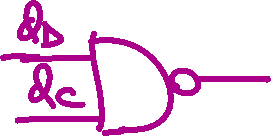 QD
QC